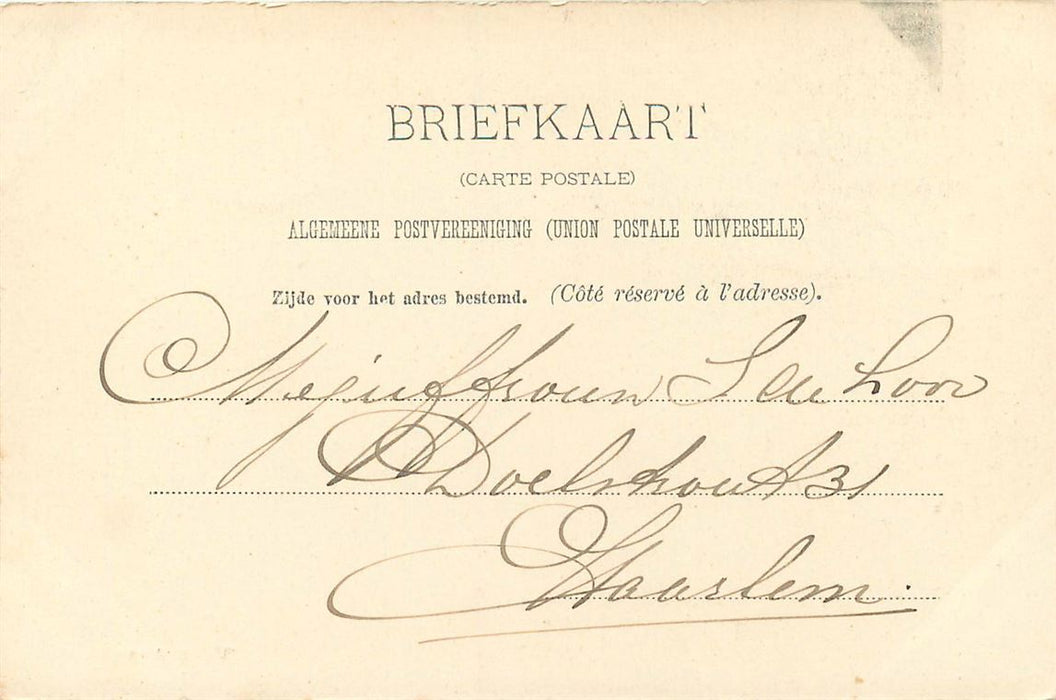 BRIEFKAART
(CARTE POSTALE)
ALGEMEENE POSTVEREENIGING (UNION POSTALE UNIVERSELLE)
Zijde voor het adres bestemd. (Côté réservé à l'adresse).
Mejuffrouw S de
31
Haarlem.